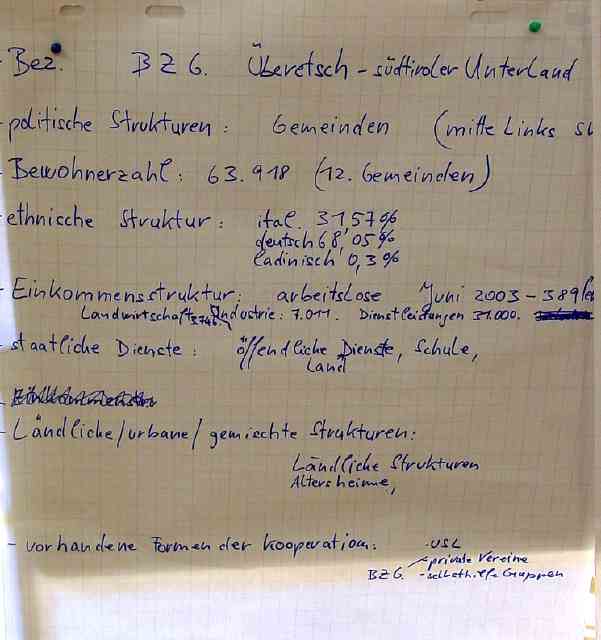 - Bez. BZG. Überetsch - südtiroler Unterland
- politische Strukturen: Gemeinden (mitte Links
- Bewohnerzahl: 63.918 (12. Gemeinden)
- ethnische Struktur: ital. 31,57%
deutsch 68,05%
ladinisch 0,3%
- Einkommensstruktur: arbeitslose Juni 2003 - 389
Landwirtschaft Industrie: 7.011. Dienstleistungen 31.000.
- staatliche Dienste: öffendliche Dienste, Schule,
Land
- Ländliche/urbane/gemischte Strukturen:
Ländliche Strukturen
Altersheime,
- vorhandene Formen der Kooperation: - USL
- private Vereine
BZG. - selbsthilfe Gruppen